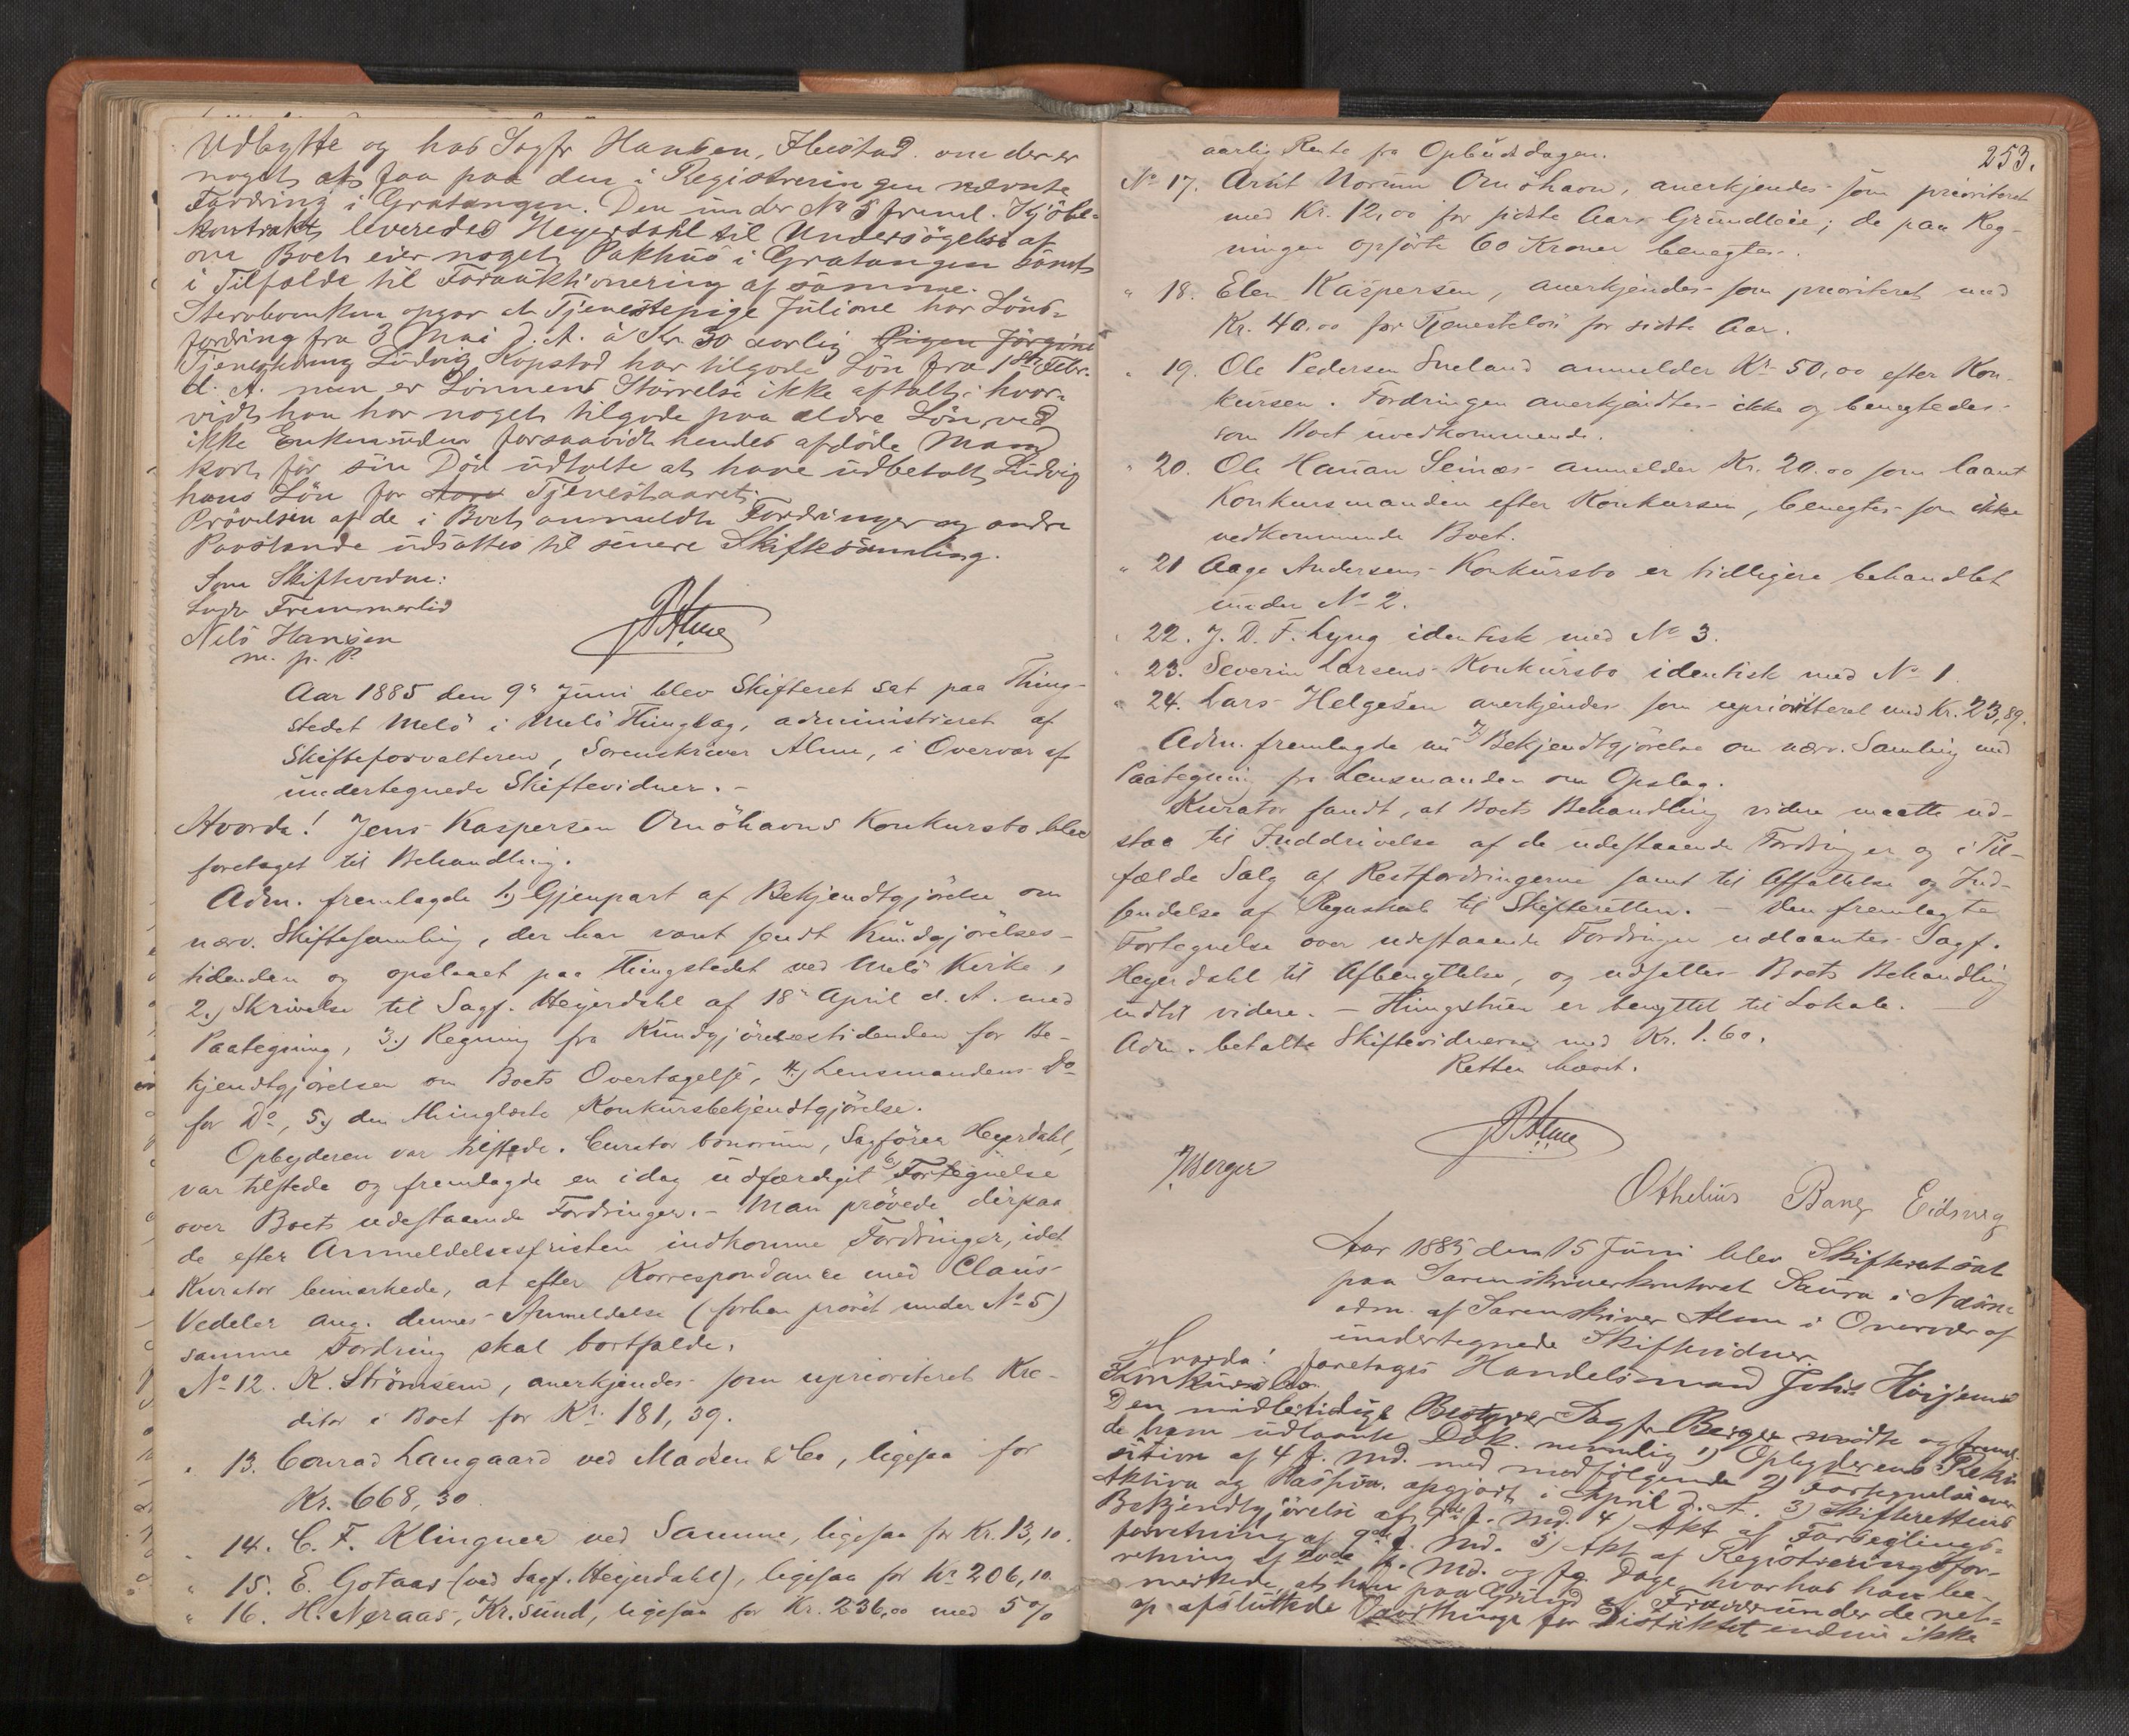 Udbytte og hos Sagfr Hansen, Ibestad. om der er
noget at faa paa den i Registreringen nævnte
Fordring i Gratangen. Den under No 5 freml. Kjöbe-
kontrakt leveredes Heyerdahl til Undersögelse af
om Boet eier noget Pakhus i Gratangen samt
i Tilfælde til Forauktionering af samme.
Stervboenken opgav at Tjenestepige Juliane har Löns-
fordring fra 3 Mai d. A. à Kr. 30 aarlig Pigen Jörgine
Tjenestedreng Ludvig Kopstad har tilgode Lön fra 18de Febr.
d. A. men er Lönnens Störrelse ikke aftalt; hvor-
vidt han har noget tilgode paa ældre Lön, ved
ikke Enken uden forsaavidt hendes afdöde Mand
kort för sin Död udtalte at have udbetalt Ludvig
hans Lön for Tjenesteaaret.
Prövelsen af de i Boet anmeldte Fordringer og andre
Paastande udsattes til senere Skiftesamling.
Som Skiftevidne:
Fremmerlid
Nils Hansen
m. p. P.
PAlme
Aar 1885 den 9de Juni blev Skifteret sat paa Thing-
stedet Melö i Melö Thinglag, administreret af
Skifteforvalteren, Sorenskriver Alme, i Overvær af
undertegnede Skiftevidner. -
Hvorda! Jens Kaspersen Omöhavns Konkursbo blev
foretaget til Behandling.
Adm. fremlagde 1) Gjenpart af Bekjendtgjörelse om
nærv. Skiftesamling, der har været sendt Kundgjörelses-
tidenden og opslaaet paa Thingstedet ved Melö Kirke,
2.) Skrivelse til Sagf. Heyerdahl af 18de April d. A. med
Paategning, 3.) Regning fra Kundgjörelsestidenden for Be-
kjendtgjörelsen om Boets Overtagelse, 4) Lensmandens Do
for Do, 5) den thinglæste Konkursbekjendtgjörelse.
Opbyderen var tilstede. Curator bonorum, Sagförer Heyerdahl,
var tilstede og fremlagde en idag udfærdiget 6) Fortegnelse
over Boets udestaaende Fordringer. - Man prövede derpaa
de efter Anmeldelsesfristen indkomne Fordringer, idet
Kurator bemærkede, at efter Korrespondance med Claus
Vedeler ang. dennes Anmeldelse (forhen prövet under No 5)
samme Fordring skal bortfalde.
No 12. K. Strömsem, anerkjendes som uprioriteret Kre-
ditor i Boet for Kr. 181,39.
" 13. Conrad Langaard ved Madsen & Co, ligesaa for
Kr. 668,30
" 14. C. F. Klingner ved Samme, ligesaa for Kr. 13,10.
" 15. E. Gotaas (ved Sagf. Heyerdahl), ligesaa for Kr 206,10.
" 16. H. Neraas, Kr.sund, ligesaa for Kr. 236,00 med 5%
253.
aarlig Rente fra Opbudsdagen.
No 17. Arnt Norum Omöhavn, anerkjendes som prioriteret
med Kr. 12,00 for sidste Aars Grundleie; de paa Reg-
ningen opförte 60 Kroner benegtes.
" 18. Elen Kaspersen, anerkjendes som prioriteret med
Kr. 40.00 for Tjenestelön for sidste Aar.
" 19. Ole Pedersen anmelder Kr 50,00 efter Kon-
kursen. Fordringen anerkjendtes ikke og benegtedes
som Boet uvedkommende.
" 20. Ole Hanan Seines anmelder Kr. 20.00 som laant
Konkursmanden efter Konkursen, benegtes som ikke
vedkommende Boet.
" 21 Aage Andersens Konkursbo er tidligere behandlet
under No 2.
" 22. J. D. F. Lyng identisk med No 3.
" 23. Severin Larsens Konkursbo identisk med No 1
" 24. Lars Helgesen anerkjendes som uprioriteret med Kr. 23,89.
Adm. fremlagde nu 7) Bekjendtgjörelse om nærv. Samling med
Paategning fra Lensmanden om Opslag.
Kurator fandt, at Boets Behandling videre maatte ud-
staa til Inddrivelse af de udestaaende Fordringer og i Til-
fælde Salg af Restfordringerne samt til Affattelse og Ind-
sendelse af Regnskab til Skifteretten. - Den fremlagte
Fortegnelse over udestaaende Fordringer udlaantes Sagf.
Heyerdahl til Afbenyttelse, og udsattes Boets Behandling
indtil videre. - Thingstuen er benyttet til Lokale.
Adm. betalte Skiftevidnerne med Kr. 1.60.
Retten hævet.
PAlme
Berger
Othelius Bang Eidsneg
Aar 1885 den 15 Juni blev Skifteret sat
paa Sorenskriverkontoret Saura i Næsne
adm. af Sorenskriver Alme i Overvær af
undertegnede Skiftevidner.
Hvorda! foretoges Handelsmand Johs Höijems
Konkursbo.
Den midlertidige Bestyrer Sagf. Berger mödte og freml.
de ham udlaante Dok. nemmlig 1) Opbyderens Rekvi-
sition af 4 f. Md. med medfölgende 2) Fortegnelse over
Aktiva og Passiva opgjort i April d. A. 3) Skifterettens
Bekjendtgjörelse af f. Md. 4) Akt af Forseglings-
forretning af 9de f. Md. 5) Akt af Registreringsfor-
retning af 20de f. Md. og fg. Dage, hvorhos han be-
mærkede, at han paa Grund af Fravær under de net-
op afsluttede Vaarthinge for Distriktet endnu ikke